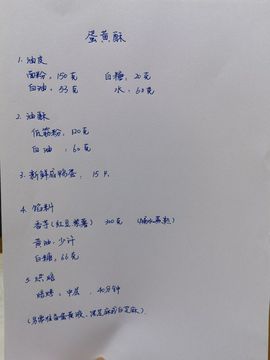 蛋黄酥
1. 油皮
面粉：150克 白糖：20克
白油：53克 水：60克
2. 油酥
低筋粉：120克
白油：60克
3. 新鲜咸鸭蛋：15个
4. 馅料
香芋(红豆紫薯) 300克
黄油：少许
白糖：66克
5. 烘焙
焙烤：中层，40分钟
(另需准备蛋黄液，黑芝麻或白芝麻)